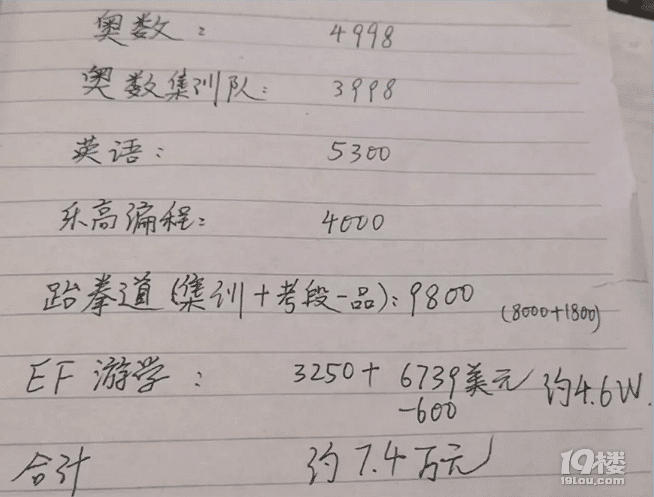 奥数: 4998
奥数集训队: 3998
英语: 5300
乐高编程: 4000
跆拳道(集训+考段一品): 9800 (8000+1800)
EF 游学: 3250+ 6739美元 约4.6W.
-600
合计 约7.4万元
19楼
19lou.com